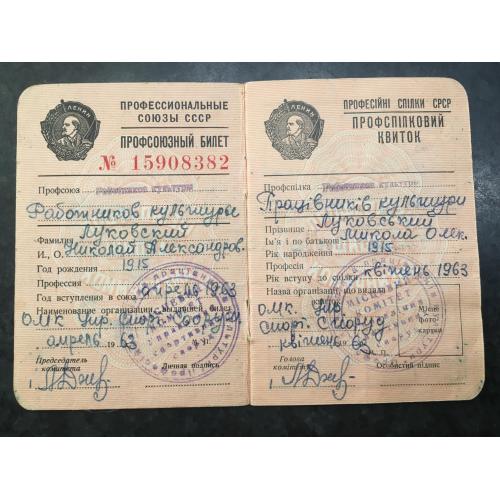 ЛЕНИН
ПРОФЕССИОНАЛЬНЫЕ
СОЮЗЫ СССР
ПРОФСОЮЗНЫЙ БИЛЕТ
№ 15908382
Профсоюз
Работников культуры
Фамилия Луковский
И., О. Николай Александров.
Год рождения 1915
Профессия
Год вступления в союз апрель 1963
Наименование организации, выдавшей билет
апрель 1963
Председатель
комитета
Личная подпись
ЛЕНИН
ПРОФЕСІЙНІ СПІЛКИ СРСР
ПРОФСПІЛКОВИЙ
КВИТОК
Профспілка
Працівників культури
Прізвище Луковський
Ім'я і по батькові Микола Олек.
Рік народження 1915
Професія
Рік вступу до спілки квітень 1963
Назва організації, що видала
квиток
Спорт. Споруд
квітень 1963
Місце
фото-
картки
Голова
комітету
Особистий підпис